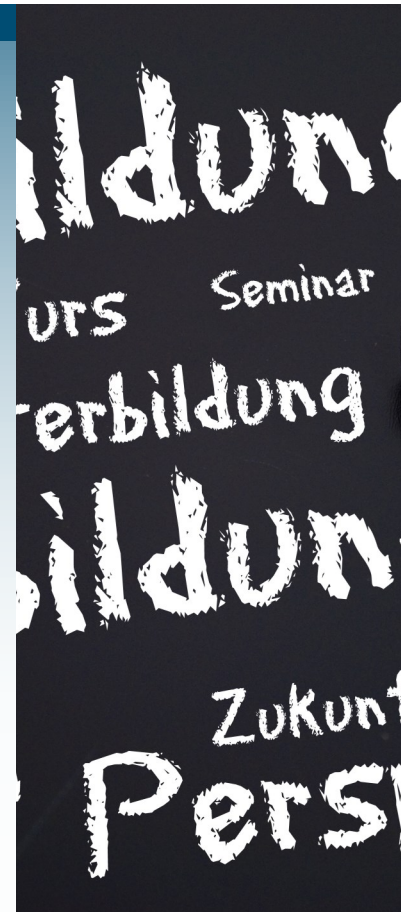 ildung
urs Seminar
erbildung
ildun
Zukunf
Pers